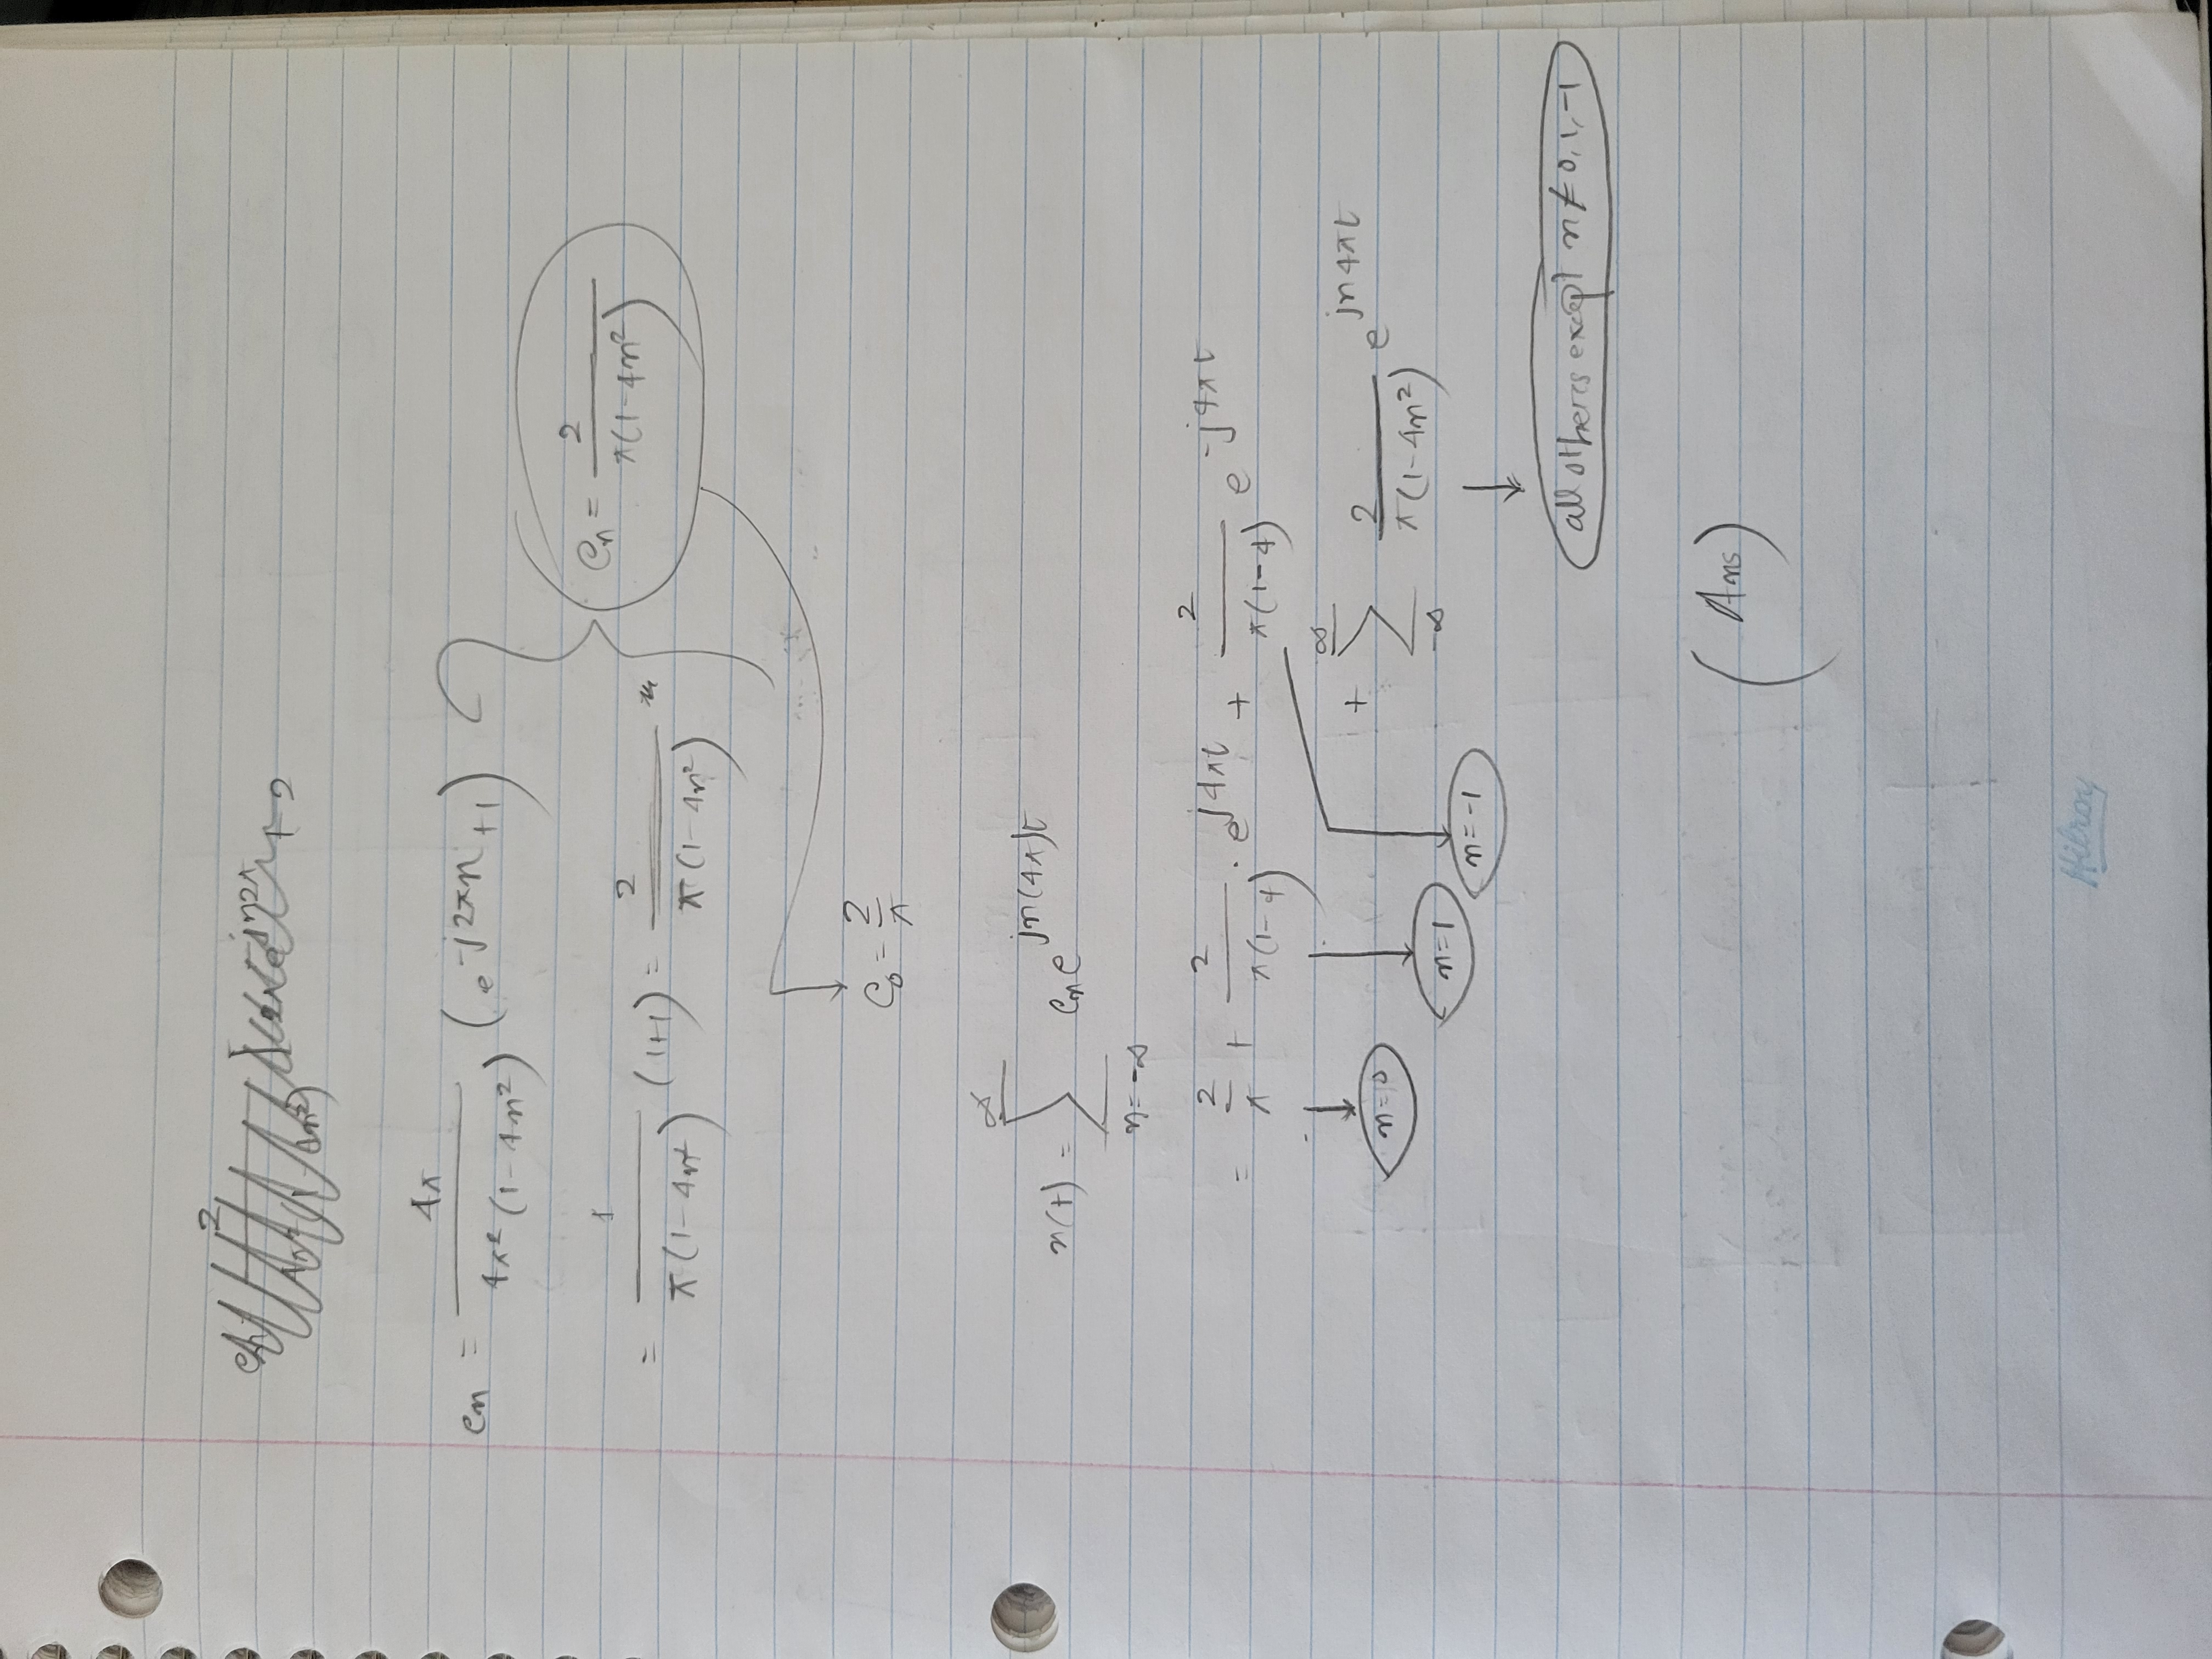 + 2
cn = 4π / 4π² (1-4n²) (e^-j2πn +1)
= 1 / π(1-4n²) (1+1) = 2 / π(1-4n²)
Cn = 2 / π(1-4n²)
C0 = 2/π
x(t) = ∑ n=-∞ ∞ Cn e^jn(4π)t
= 2/π + 2 / π(1-4) · e^j4πt + 2 / π(1-4) e^-j4πt
+ ∑ -∞ ∞ 2 / π(1-4n²) e^jn4πt
n=0
n=1
n=-1
all others except n≠0,1,-1
(Ans)
Hilroy